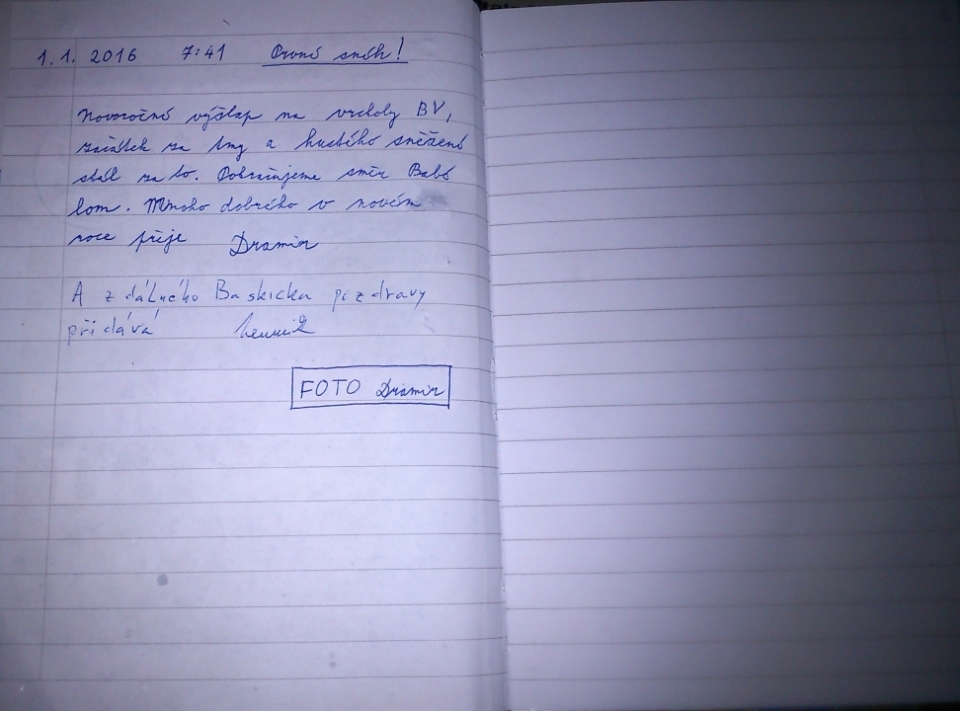 1. 1. 2016 7:41 První sníh!
Novoroční výšlap na vrcholy BV,
začátek za tmy a hustého sněžení
stál za to. Pokračujeme směr Babí
lom. Mnoho dobrého v novém
roce přeje Dramir
A z dálného Baskicka pozdravy
přidává
FOTO Dramir